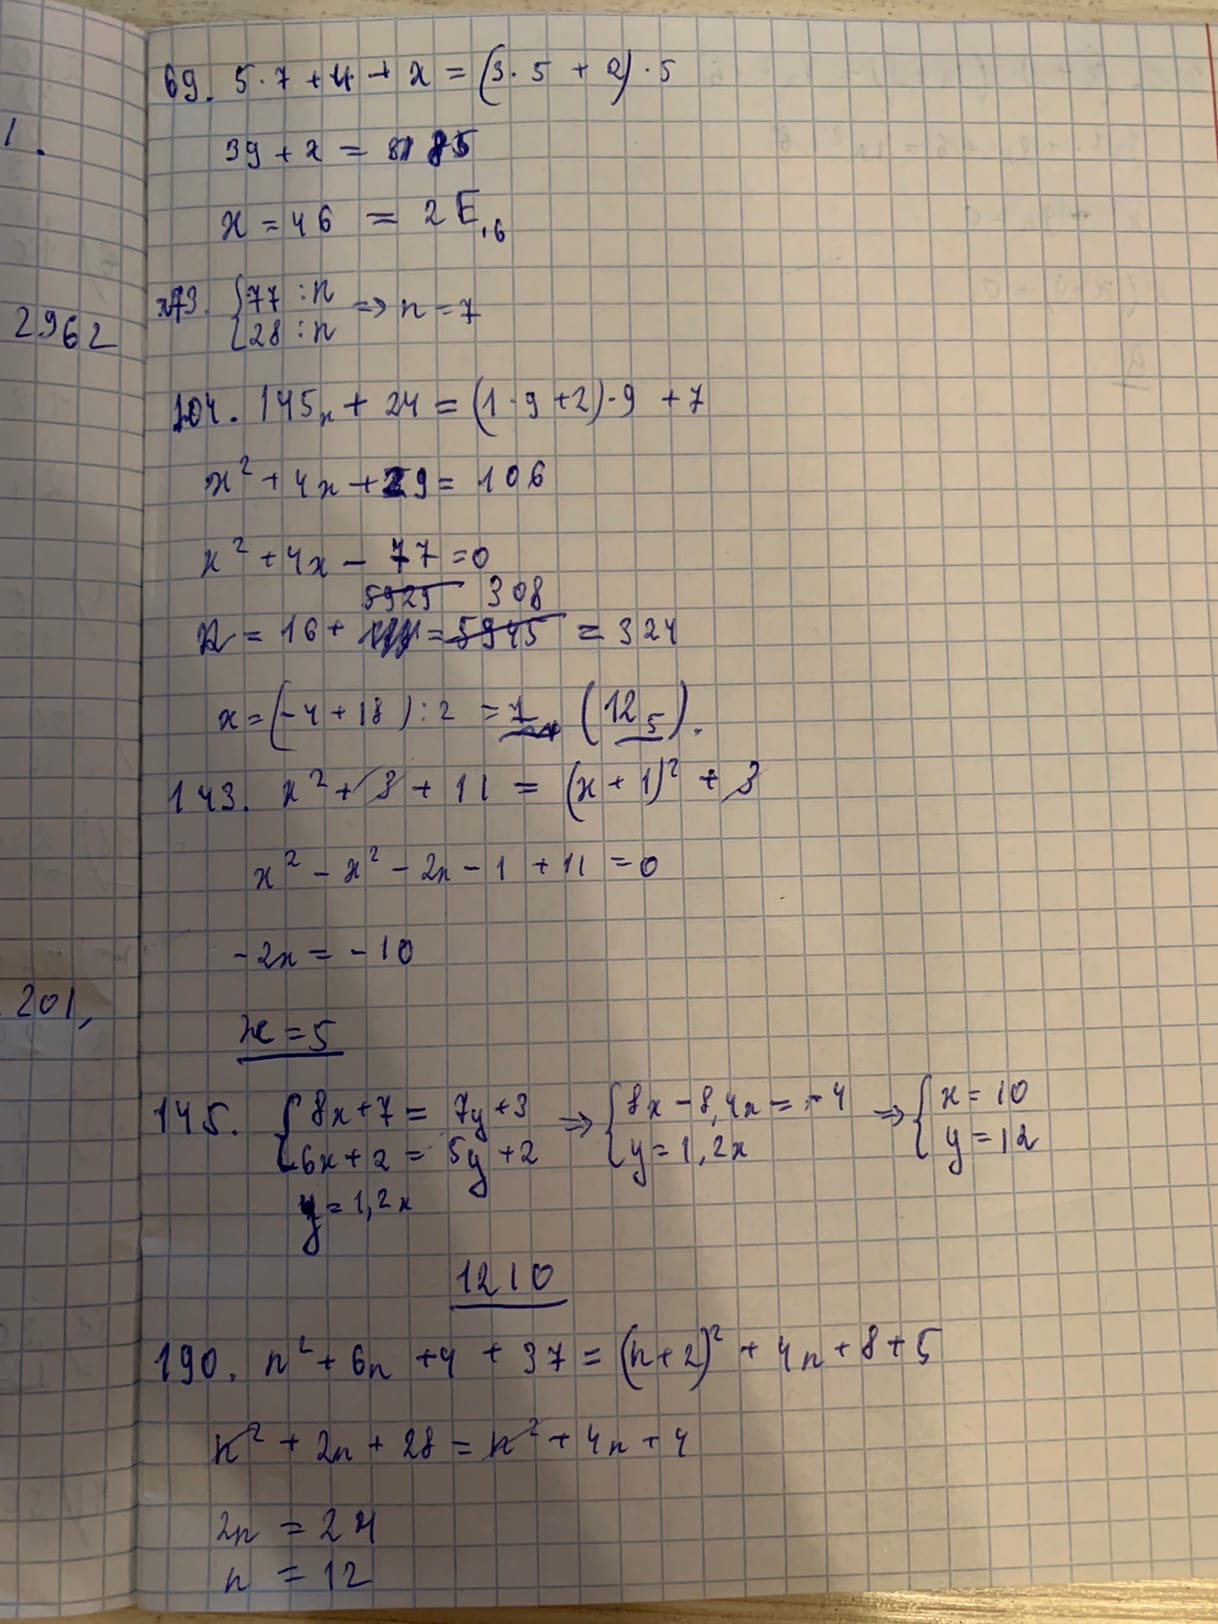 1.
2962
201,
69. 5·7+4+x=(3·5+2)·5
39+x=85
x=46=2E₁₆
73. {77:n
{28:n ⇒ n=7
104. 145ₓ+24=(1·9+2)·9+7
x²+4x+29=106
x²+4x-77=0
5925 308
=16+ =5945=324
x=(-4+18):2=7 (12₅).
143. x²+3+11=(x+1)²+3
x²-x²-2x-1+11=0
-2x=-10
x=5
145. {8x+7=7y+3 ⇒ {8x-8,4x=-4 ⇒ {x=10
{6x+2=5y+2 {y=1,2x {y=12
y=1,2x
1210
190. n²+6n+4+37=(n+2)²+4n+8+5
n²+2n+28=n²+4n+4
2n=24
n=12